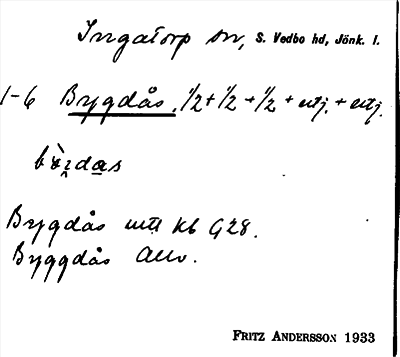 Ingatorp sn, S. Vedbo hd, Jönk. l.
1-6 Brygdås. 1/2 + 1/2 + 1/2 + utj. + utj.
Brygdås utt kb G28.
Byggdås Allm.
FRITZ ANDERSSON 1933